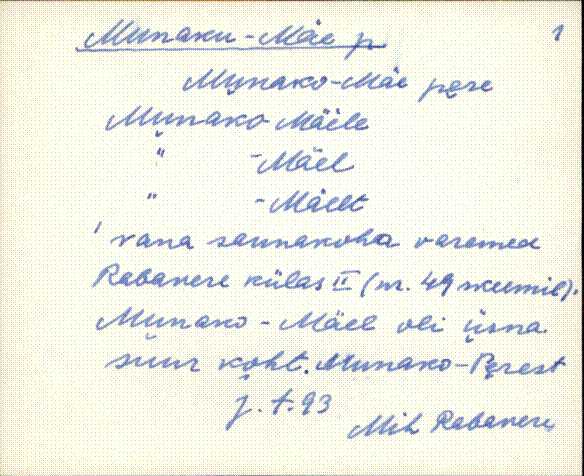 Munaku-Mäe p 1
Munako-Mäe pere
Munako Mäele
" -Mäel
" -Mäelt
' vana saunakoha varemed
Rabavere külas II (nr. 49 skeemil).
Munako-Mäel oli üsna
suur koht. Munako-Perest
j. t. 93
Mih Rabavere